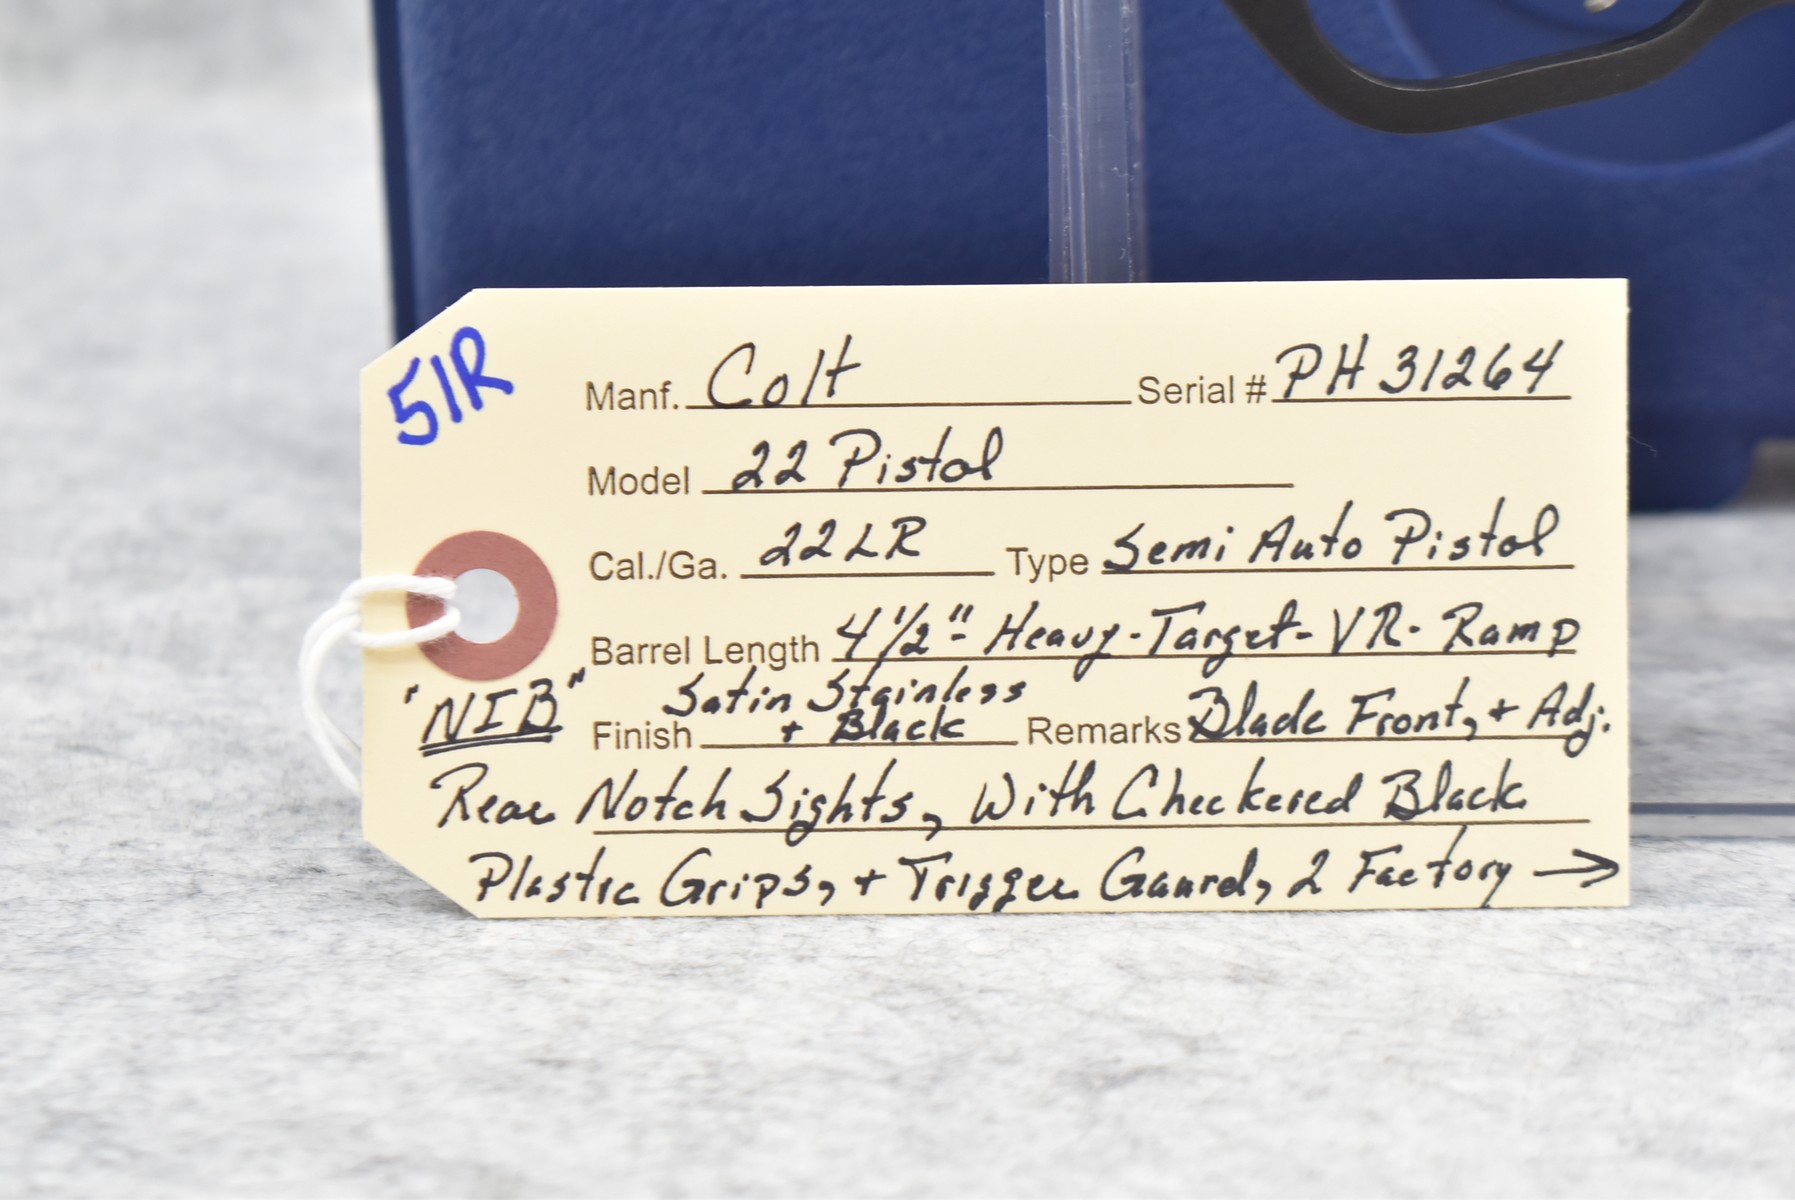 51R
Manf. Colt Serial # PH31264
Model 22 Pistol
Cal./Ga. 22LR Type Semi Auto Pistol
Barrel Length 4 1/2"- Heavy-Target-VR-Ramp
"NIB" Finish Satin Stainless
+ Black Remarks Blade Front, + Adj.
Rear Notch Sights, With Checkered Black
Plastic Grips, + Trigger Gaurd, 2 Factory →